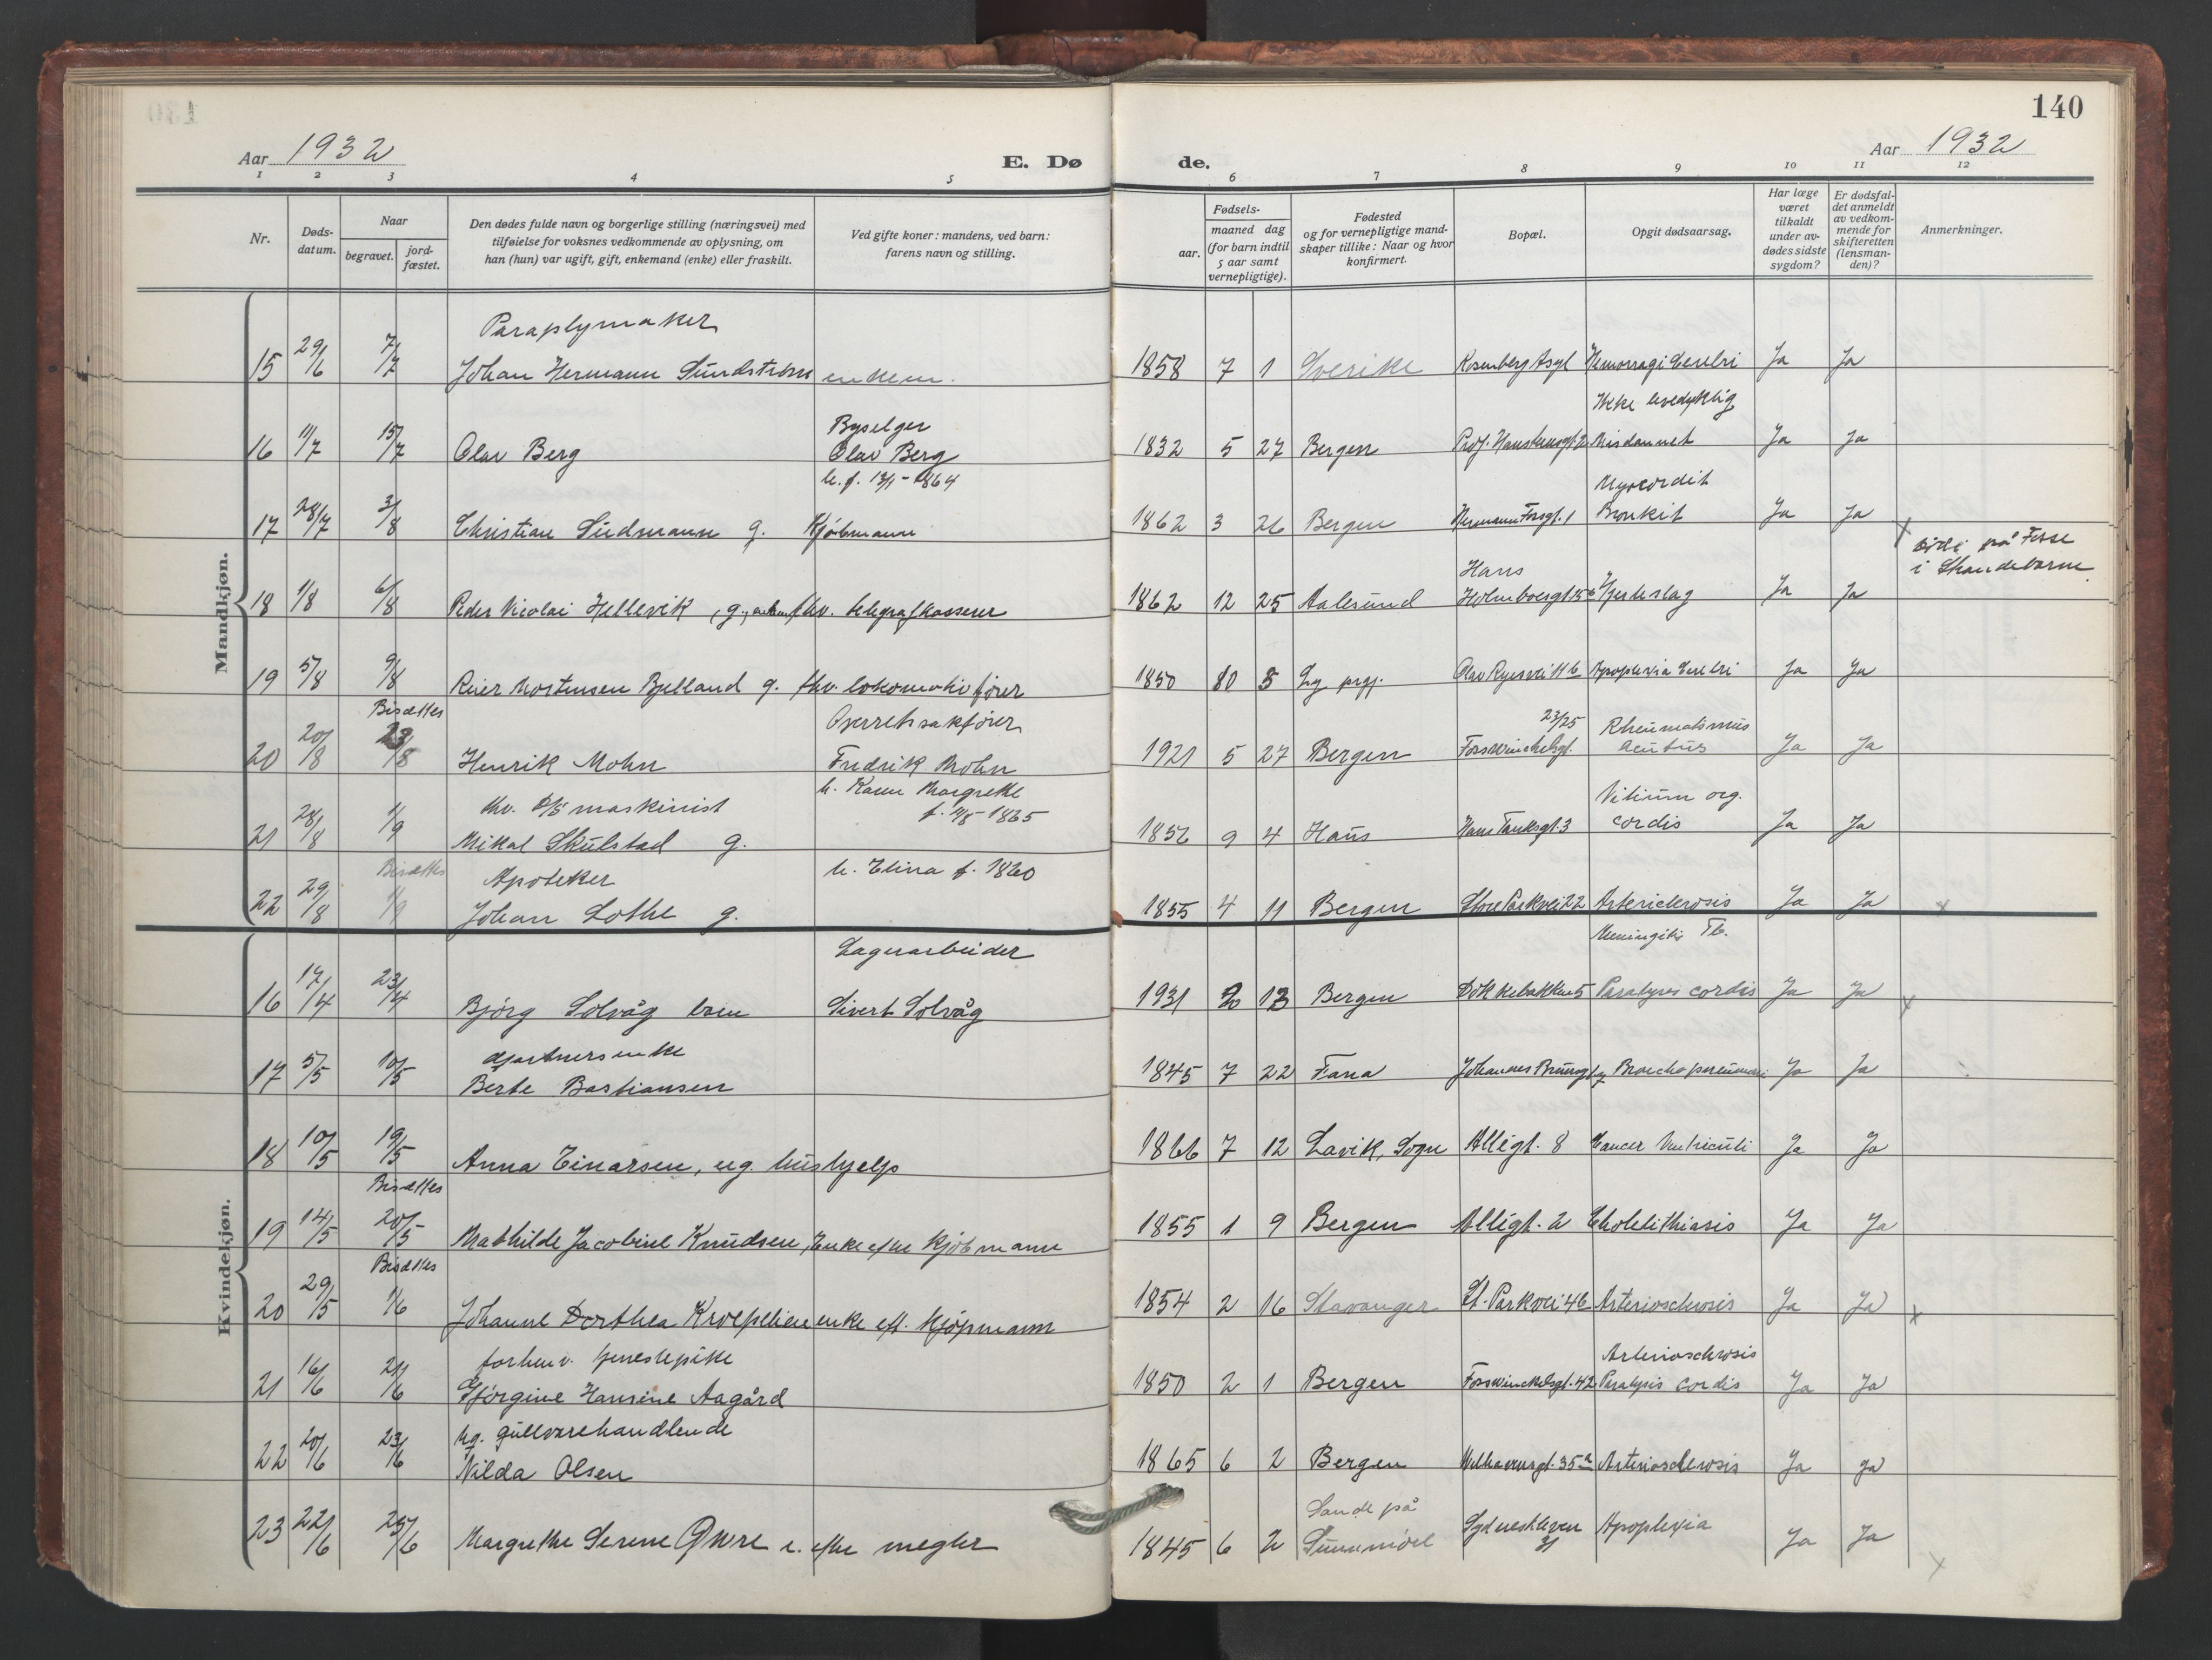 140
Aar 1932
E. Dø
de.
Aar 1932
1 2 3 4 5 6 7 8 9 10 11 12
Nr.
Døds-
datum.
Naar
begravet.
jord-
fæstet.
Den dødes fulde navn og borgerlige stilling (næringsvei) med
tilføielse for voksnes vedkommende av oplysning, om
han (hun) var ugift, gift, enkemand (enke) eller fraskilt.
Ved gifte koner: mandens, ved barn:
farens navn og stilling.
Fødsels-
aar.
maaned dag
(for barn indtil
5 aar samt
vernepligtige).
Fødested
og for vernepligtige mand-
skaper tillike: Naar og hvor
konfirmert.
Bopæl.
Opgit dødsaarsag.
Har læge
været
tilkaldt
under av-
dødes sidste
sygdom?
Er dødsfal-
det anmeldt
av vedkom-
mende for
skifteretten
(lensman-
den)?
Anmerkninger.
Mandkjøn.
Paraplymaker
15 29/6 7/7 Johan Hermann Sundström enkem. 1858 7 1 Sverike Rosenberg Asyl Hemorragi Cerebri Ja Ja
Byselger Ikke levedyktig
16 11/7 15/7 Olav Berg Olav Berg 1832 5 27 Bergen Prof. Hansteensgt. 2 Misdannet Ja Ja
h. f. 13/1 - 1864 Myocordit
17 28/7 3/8 Christian Sudmann g. Kjöbmann 1862 3 26 Bergen Hermann Fossgt. 1 Bronkit Ja Ja
x döde på Fosse
i Strandebarm
Hans
18 1/8 6/8 Peder Nicolai Hellevik, g., fhv. telegrafkasserer 1862 12 25 Aalesund Holmboesgt 15 Hjerteslag Ja Ja
19 5/8 9/8 Reier Mortensen Bjelland g. fhv. lokomotivförer 1850 10 5 Ly prgj. Olav Ryesvei 11 b Apoplexia Cerebri Ja Ja
Bisættes Overretssakförer 23/25 Rheumatismus
20 20/8 23/8 Henrik Mohn Fredrik Mohn 1921 5 27 Bergen Fosswinckelsgt. acutus Ja Ja
fhv. D/S maskinist h. Karen Margrethe Vitium org.
f. 11/5 - 1865
21 28/8 1/9 Mikal Skulstad g. 1856 9 4 Haus Hans Tanksgt. 3 cordis Ja Ja
Bisættes Apoteker h. Elina f. 1860
22 29/8 1/9 Johan Lothe g. 1855 4 11 Bergen Store Parkvei 22 Artericlerosis Ja Ja x
Kvindekjøn.
Lagerarbeider Meningitis Tb.
16 17/4 23/4 Björg Solvåg barn Sivert Solvåg 1931 2 13 Bergen Dokkebakken 5 Paralysis cordis Ja Ja x
Gjartnersenke
17 5/5 10/5 Berte Bastiansen 1845 7 22 Fana Johannes Brunsgt. 7 Bronchopneumoni Ja Ja
18 10/5 19/5 Anna Einarsen, ug. hushjelp 1866 7 12 Lavik, Sogn Allégt. 8 Cancer Ventriculi Ja Ja
Bisættes
19 14/5 20/5 Mathilde Jacobine Knudsen, Enke efter kjöbmann 1855 1 9 Bergen Allégt. 2 Cholelithiasis Ja Ja
Bisættes
20 29/5 1/6 Johanne Dorthea Kroepelien enke eft. Kjøpmann 1854 2 16 Stavanger St. Parkvei 46 Arteriosclerosis Ja Ja x
forhenv. tjenestepike Arteriosclerosis
21 16/6 21/6 Gjörgine Hansine Aagård 1850 2 1 Bergen Fosswinckelsgt. 42 Paralysis cordis Ja Ja
ug. gullvarehandlende
22 20/6 23/6 Nilda Olsen 1865 6 2 Bergen Welhavensgt. 35 a Arteriosclerosis Ja Ja
Sande på
23 22/6 25/6 Margrethe Serine e. efter megler 1845 6 2 Sunnmöre Sydneskleven 31 Apoplexia Ja Ja x